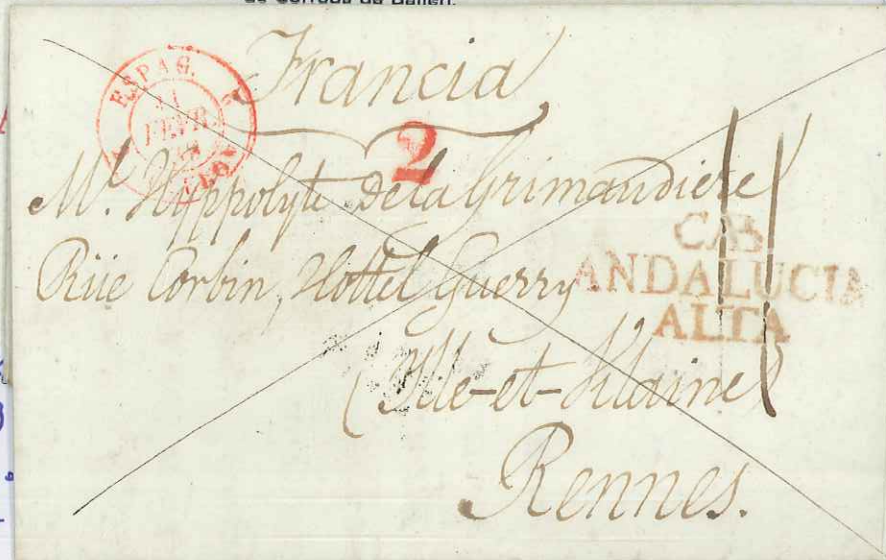 de Correos de Bailén.
ESPAG.
FEVR.
Francia
2
Mr. Hyppolyte de la Grimaudiere
Rüe Corbin, Hottel Guerry
CAB
ANDALUCIA
ALTA
(Ille-et-Vilaine)
Rennes.